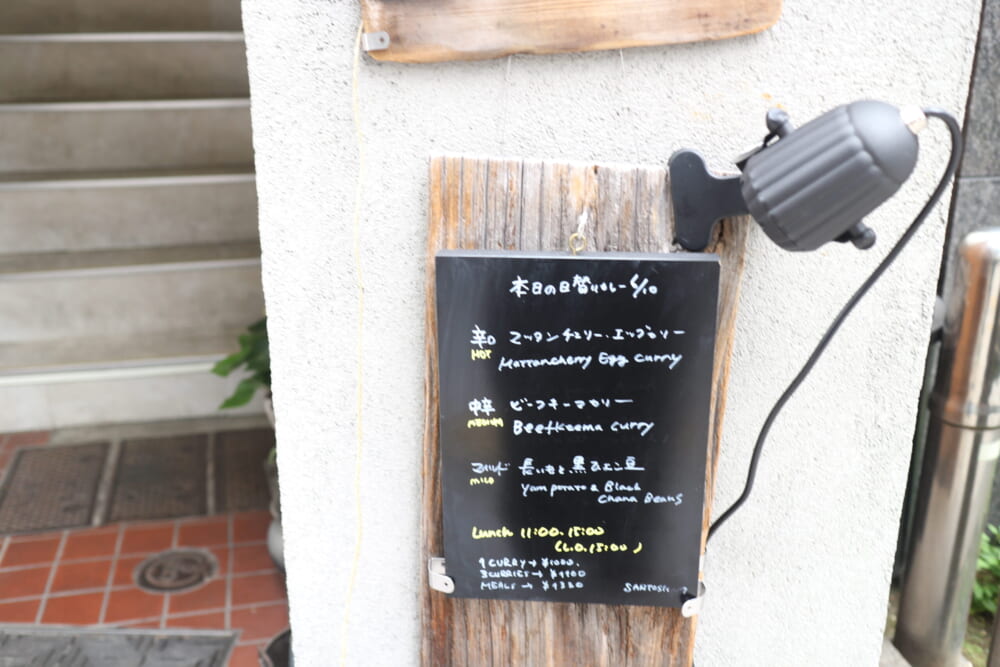 本日の日替りカレー 6/10
辛口 マッタンチェリー.エッグカリー
HOT Mattancherry Egg curry
中辛 ビーフキーマカリー
MEDIUM Beef Keema curry
マイルド 長いもと黒ひよこ豆
MILD Yam potato & Black
Chana Beans
Lunch 11:00.15:00
(L.O.15:00)
1 CURRY → ¥1000.
3 CURRIES → ¥1100
MEALS →